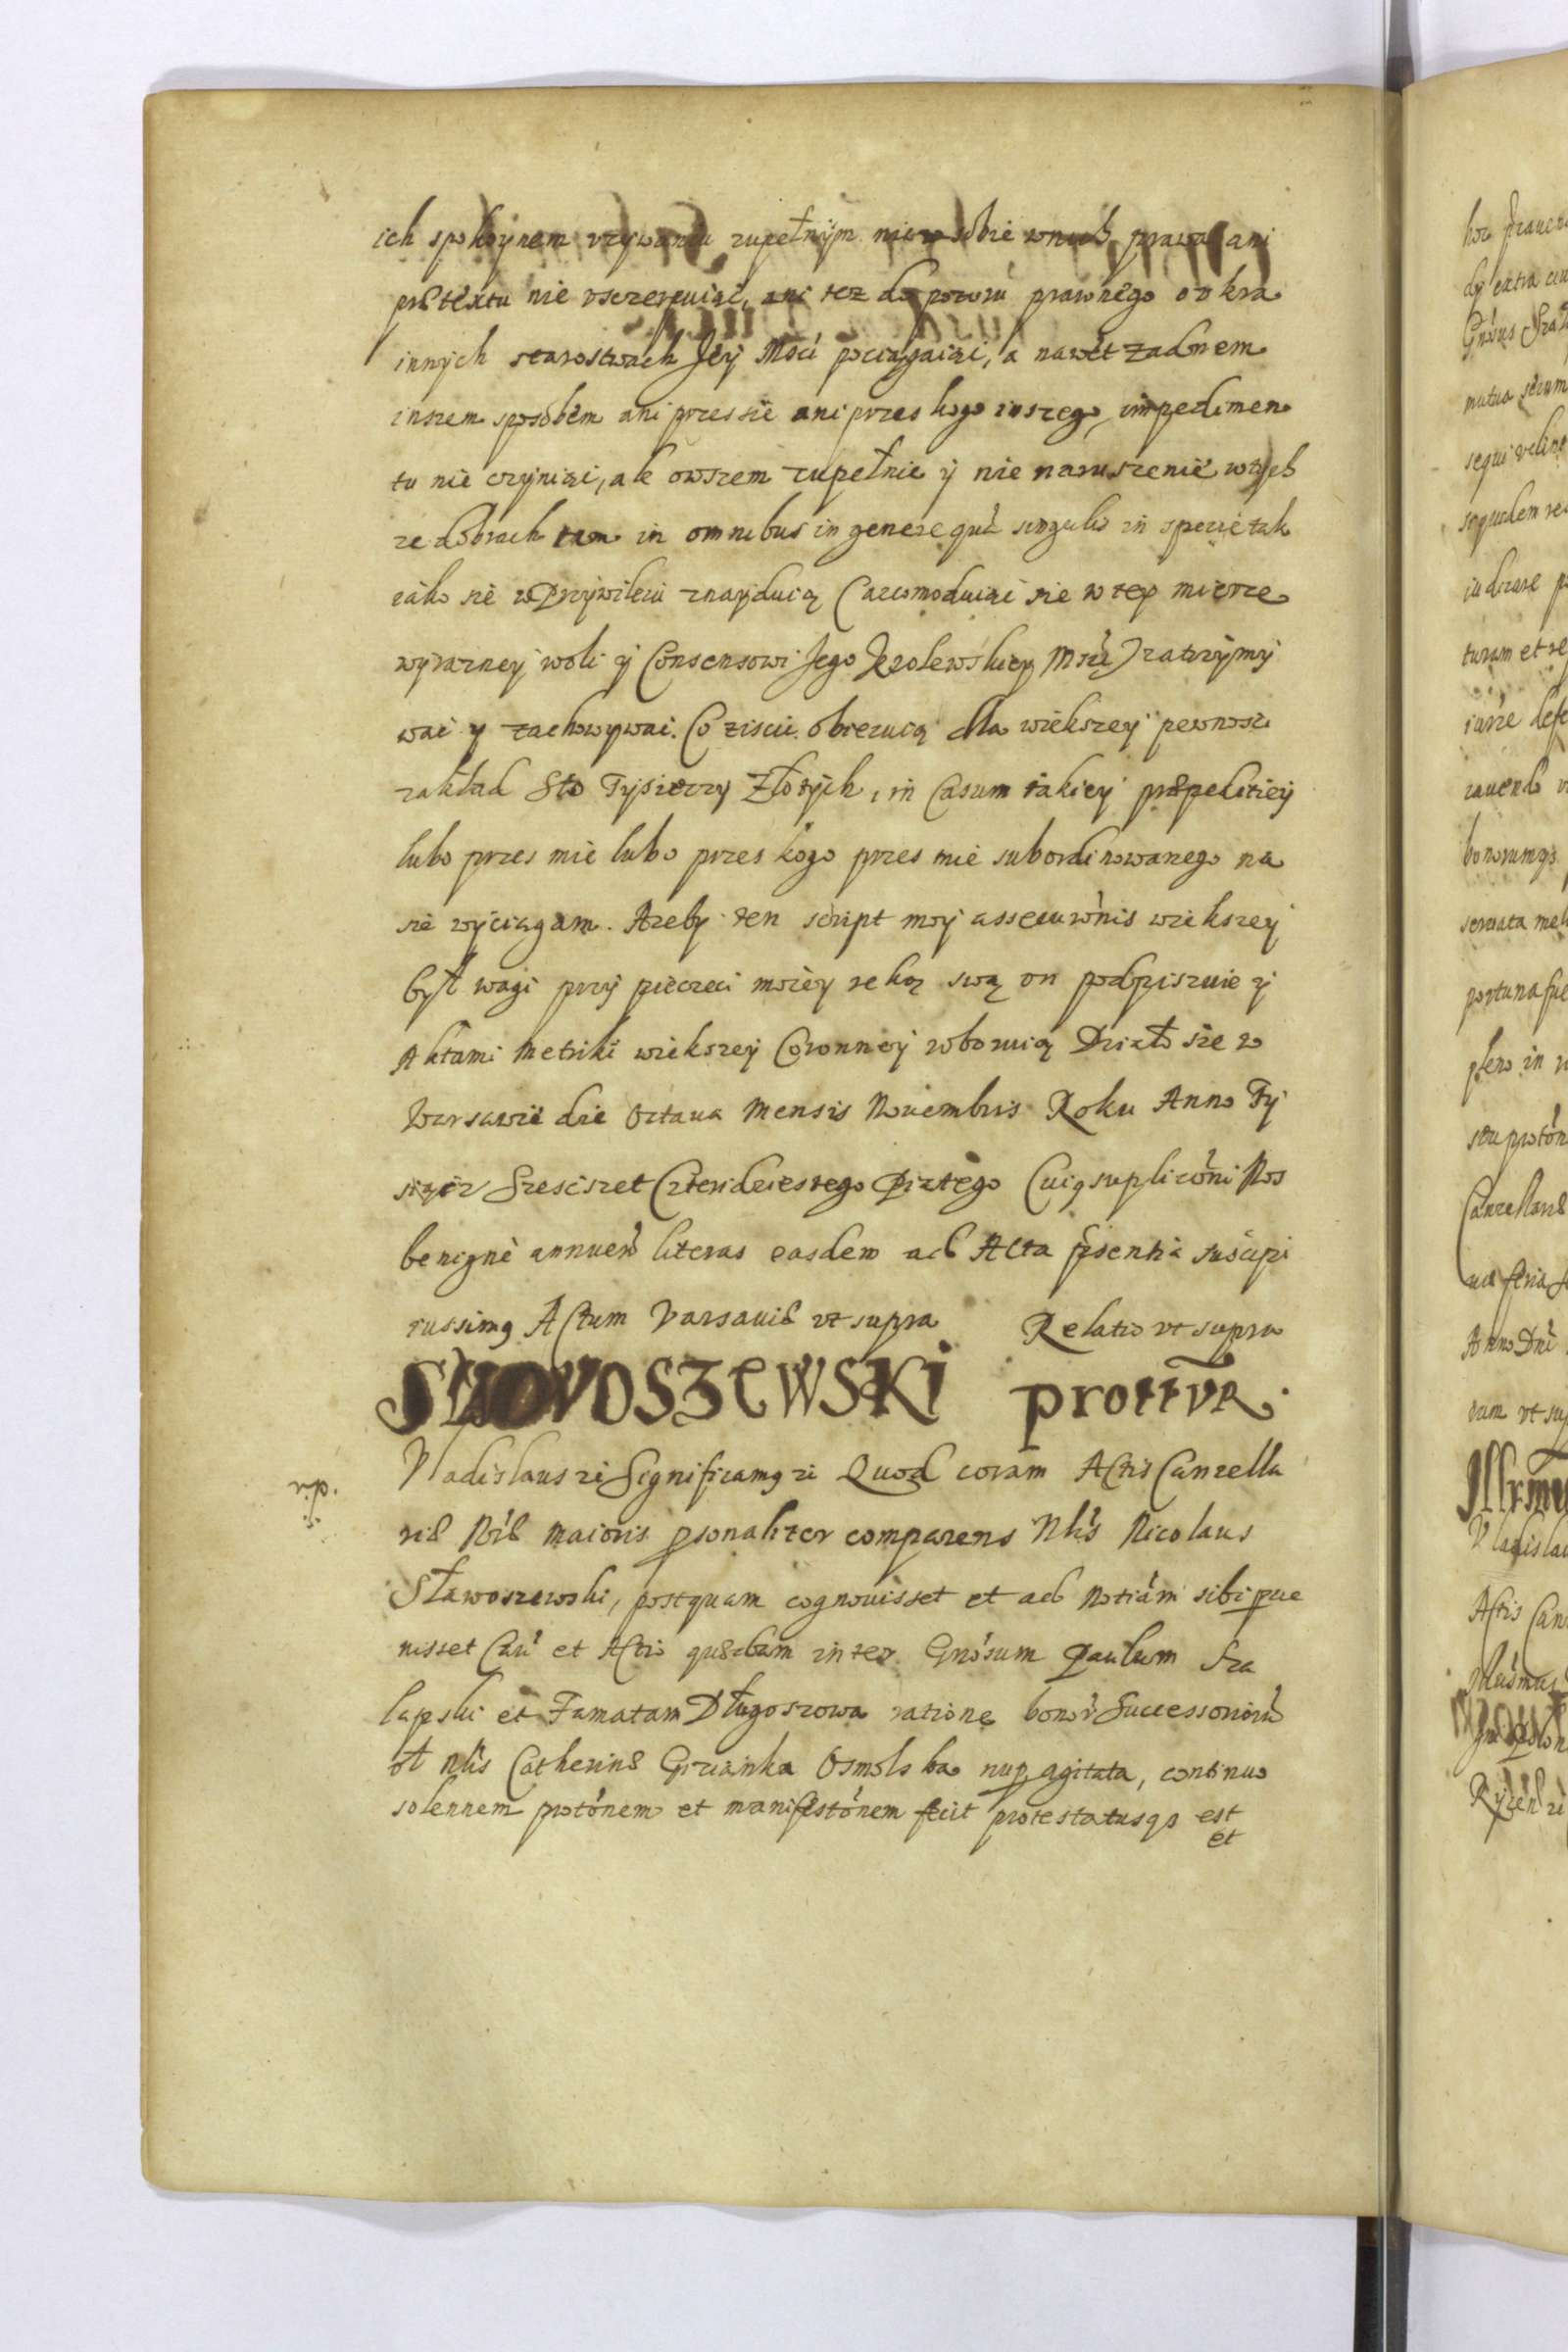 ich spokoynem vzywaniu zupełnym nie sobie prawa ani
prætextu nie vsczerpuiąc, ani tez do pozwu prawnego o
innych starostwach Jey Mosci pociągaiąc, a nawet zadnem
inszem sposobem ani przes sie ani przes kogo inszego, impedimen
tu nie czyniąc, ale owszem zupełnie y nie naruszenie w tych
ze dobrach tam in omnibus in genere quā singulis in specie tak
iako sie w Przywileiu znayduią (accomoduiąc sie w tey mierze
wyrazney woli y Consensowi Jego Krolewskiey Mści) zatrzymy
wac y zachowywac. Co ziscic obiecuią dla wiekszey pewnosci
zakład Sto Tysięczy Złotych, in Casum takiey præpeditiey
lubo przes mie lubo przes kogo przes mie subordinowanego na
sie wyciągam. Azeby ten script moy assecurōnis wiekszey
był wagi przy pieczeci moiey reką swą on podpiszuie y
Aktami Metriki wiekszey Coronney roboruią Działo sie w
Warsawie die Octaua Mensis Nouembris Roku Anno Ty
siącz Szesciszet Czterdziestego Piątego Cuiq supplicōni Nos
benigne annuen̄ literas easdem ad Acta p̄sentia suscipi
Actum Varsauiæ vt supra Relatio vt supra
Słowoszewski prottūr.
Vladislaus zc Significamq zc Quod coram Actis Cancella
riæ Nr̄æ maioris psonaliter comparens Nlīs Nicolaus
Sławoszewski, postquam cognouisset et ad Notiām sibi pue
nisset Cāu et Actio quædam inter Gnōsum Paulum Sza
łapski et Famatam Długoszowa ratione bonor̄ Successorior̄
ol Nlīs Catherinæ Grzianka Osmolska nup agitata, continuo
solennem protōnem et manifestōnem fecit protestatusqs est
et